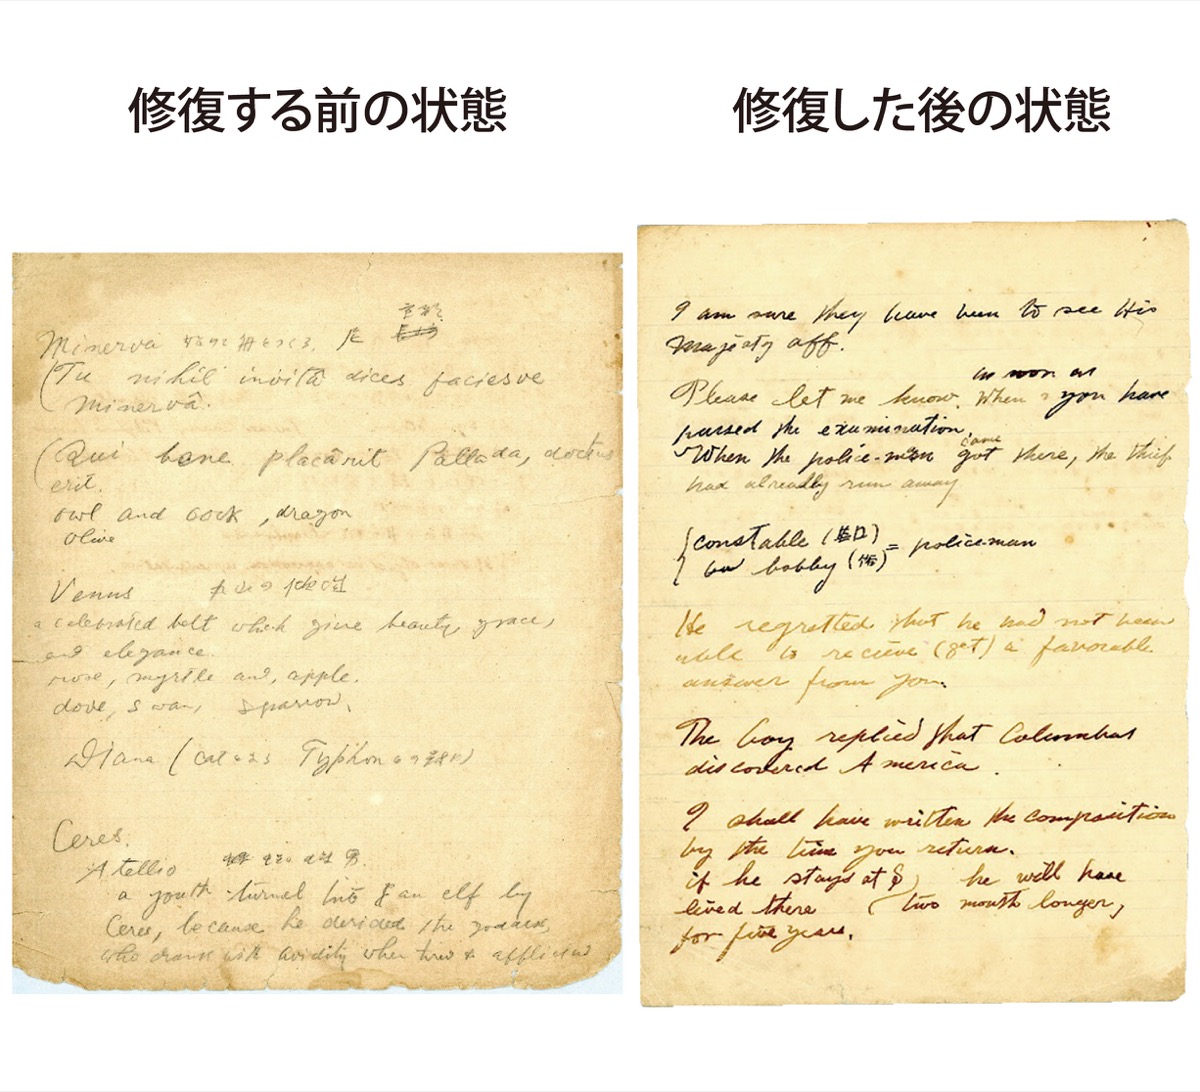 修復する前の状態
Minerva
(Tu nihil invitâ dices faciesve
Minervâ.
(Qui bene placârit Pallada, doctus
erit.
owl and cock, dragon
olive
Venus
a celebrated belt which give beauty, grace,
and elegance.
rose, myrtle and, apple.
dove, swan, sparrow,
Diana ( Typhon )
Ceres.
Atellio
a youth turned into an elf by
Ceres, because he derided the goddess,
who drank with avidity when tired & afflicted
修復した後の状態
I am sure they have been to see His
Majesty off.
as soon as
Please let me know. When you have
passed the examination.
came
When the police-man got there, the thief
had already run away
{constable (単口)
bobby (俗) = policeman
He regretted that he had not been
able to recieve (get) a favorable
answer from you.
The boy replied that Columbus
discovered America.
I shall have written the composition
by the time you return.
if he stays at he will have
lived there ( two month longer,
for five years.